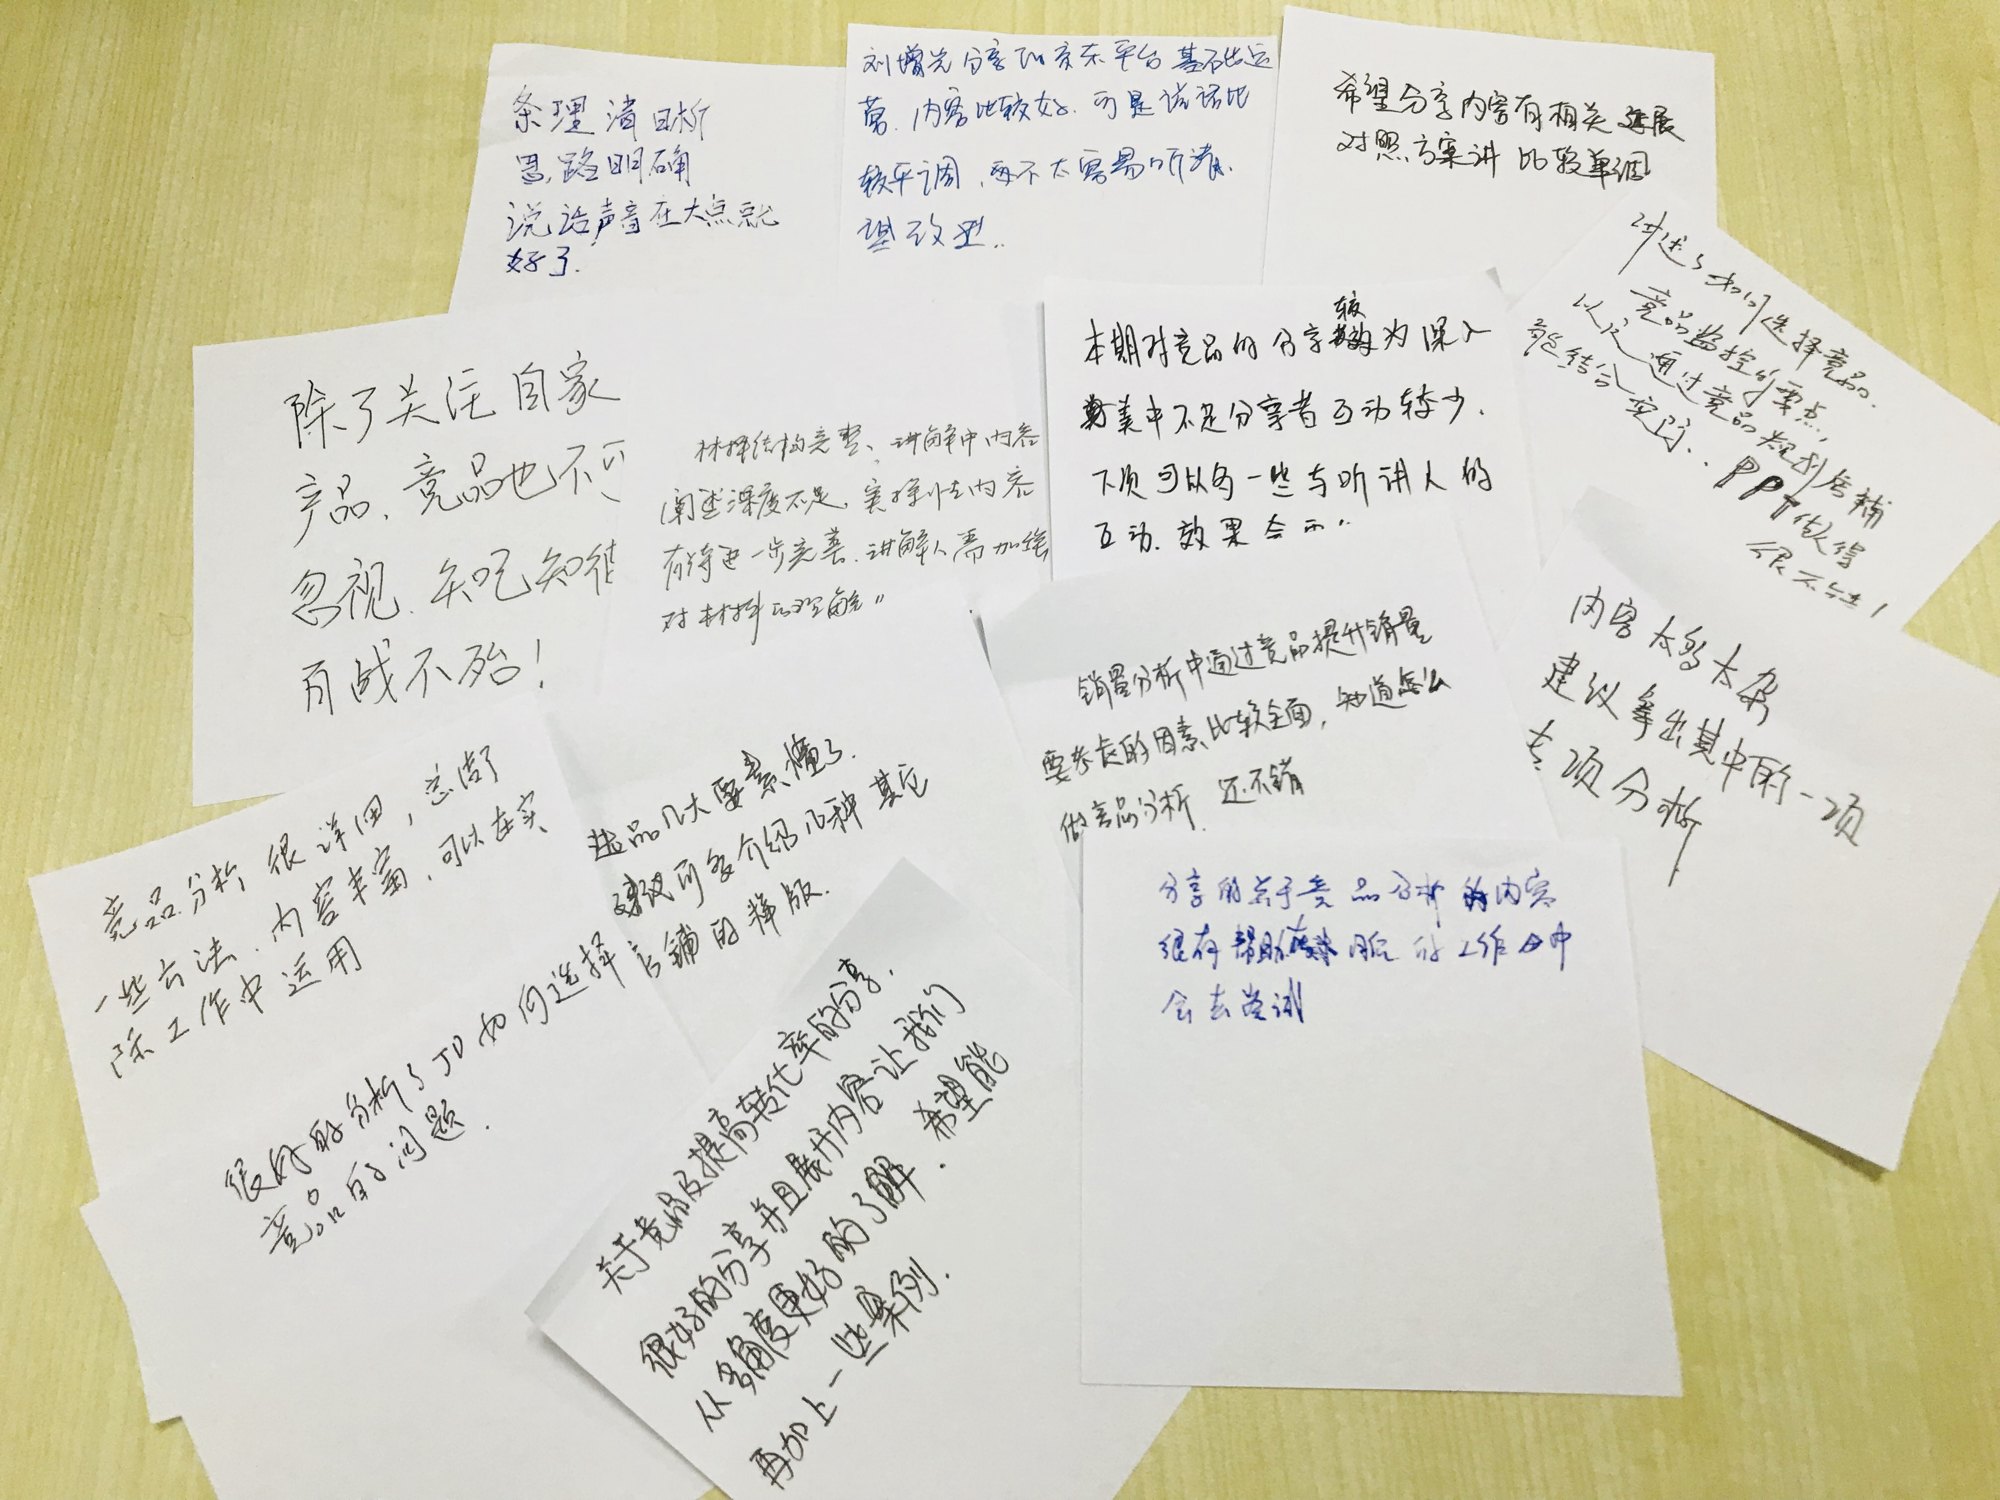 条理清晰
思路明确
说话声音在大点就
好了.
刘增光分享的京东平台基础运
营.内容比较好.可是说话比
较平调,再不太容易听清.
望改进..
希望分享内容有相关进展
对照方案讲 比较单调
讲述了如何选择竞品.
竞品监控的要点,
以及通过竞品规划店铺
能结合实际.. PPT做得
很不错!
除了关注自家
产品、竞品也不可
忽视.知己知彼
百战不殆!
材料结构完整、讲解中内容
阐述深度不足,实操性内容
有待进一步完善.讲解人需加强
对材料的理解"
本期对竞品的分享较为深入
美中不足分享者互动较少.
下项可以多一些与听讲人的
互动.效果会
销量分析中通过竞品提升销量
要参考的因素比较全面,知道怎么
做竞品分析.还不错
内容太多太杂
建议拿出其中的一项
专项分析
竞品分析很详细,总结了
一些方法.内容丰富,可以在实
际工作中运用
选品几大要素懂了.
建议可多介绍几种其它
店铺的排版.
很好的分析了JD如何选择
竞品的问题.
分享的关于竞品分析的内容
很有帮助 的工作中
会去尝试
关于竞品及提高转化率的分享.
很好的分享并且展开内容让我们
从多角度更好的了解.希望能
再加上一些案例.